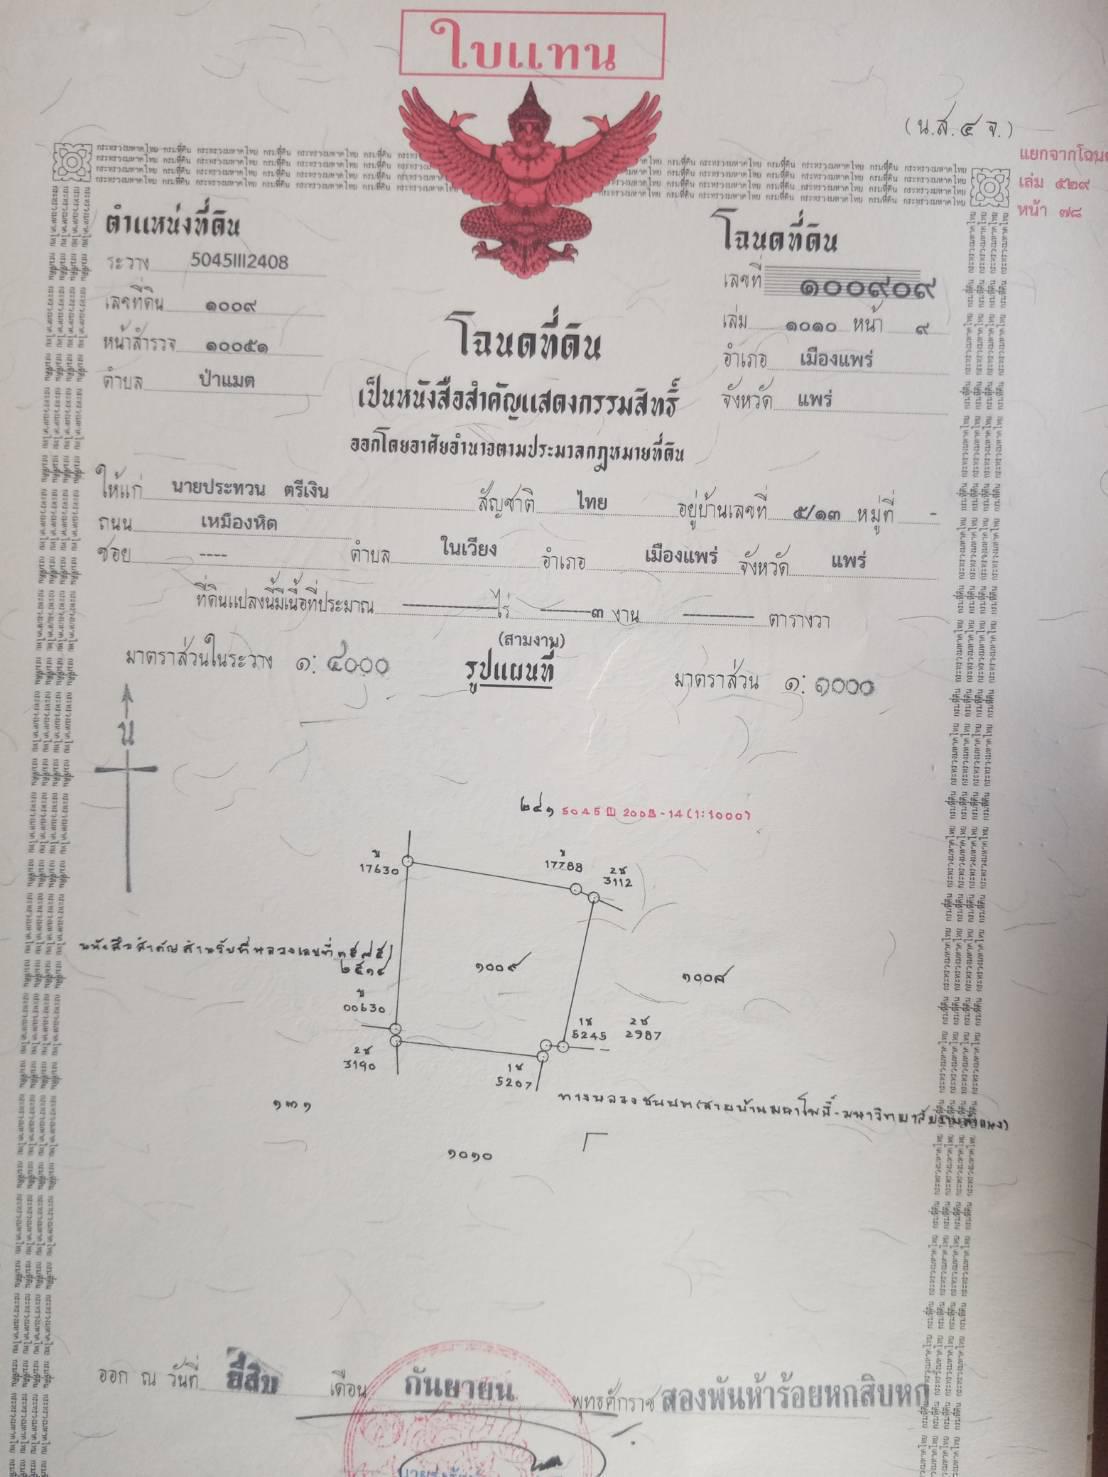 ใบแทน
(น.ส.๔ จ.)
แยกจากโฉนด
เล่ม ๕๒๙
หน้า ๗๘
ตำแหน่งที่ดิน
ระวาง 5045III2408
เลขที่ดิน ๑๐๐๙
หน้าสำรวจ ๑๐๐๕๑
ตำบล ป่าแมต
โฉนดที่ดิน
เลขที่ ๑๐๐๙๐๙
เล่ม ๑๐๑๐ หน้า ๙
อำเภอ เมืองแพร่
จังหวัด แพร่
โฉนดที่ดิน
เป็นหนังสือสำคัญแสดงกรรมสิทธิ์
ออกโดยอาศัยอำนาจตามประมวลกฎหมายที่ดิน
ให้แก่ นายประทวน ตรีเงิน สัญชาติ ไทย อยู่บ้านเลขที่ ๕/๑๓ หมู่ที่ -
ถนน เหมืองหิต
ซอย ---- ตำบล ในเวียง อำเภอ เมืองแพร่ จังหวัด แพร่
ที่ดินแปลงนี้มีเนื้อที่ประมาณ ไร่ ๓ งาน ตารางวา
(สามงาน)
มาตราส่วนในระวาง ๑: ๔๐๐๐ รูปแผนที่ มาตราส่วน ๑: ๑๐๐๐
น
๒๔๑ 5045 III 2008-14 (1:1000)
17630
17788
2ช
3112
หนังสือสำคัญสำหรับที่หลวงเลขที่
๒๕๑๔
๑๐๐๙
๑๐๐๘
00630
1ช 2ช
5245 2987
2ช
3190
1ช
5207
ทางหลวงชนบท(สายบ้านมหาโพธิ์-มหาวิทยาลัยรามคำแหง)
๑๓๑
๑๐๑๐
ออก ณ วันที่ ยี่สิบ เดือน กันยายน พุทธศักราช สองพันห้าร้อยหกสิบหก